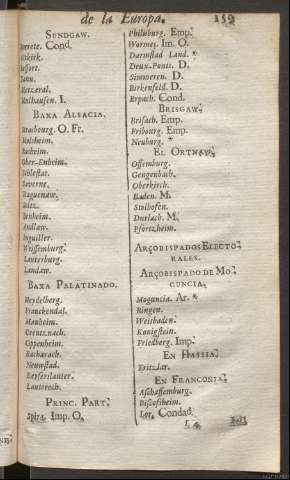 de la Europa. 159
SUNDGAW.
Ferrete. Cond.
Altkirk.
Befort.
Tann.
Matzeral.
Mulhausen. I.
BAXA ALSACIA.
Strasbourg. O. Fr.
Molsheim.
Rosheim.
Ober-Enheim.
Schlestat.
Saverne.
Haguenaw.
Seltz.
Benheim.
Andlaw.
Inguiller.
Weissemburg.
Lauterburg.
Landaw.
BAXA PALATINADO.
Heydelberg.
Franckendal.
Manheim.
Creutznach.
Oppenheim.
Bacharach.
Neuwstad.
Keyserslauter.
Lauterech.
PRINC. PART.
Spira. Imp. O.
Philisburg. Emp.
Wormes. Im. O.
Darmstad Land. *
Deux-Ponts. D.
Simmeren. D.
Birkenfeld. D.
Erpach. Cond.
BRISGAW.
Brisach. Emp.
Fribourg. Emp.
Neuburg. *
EL ORTNAW.
Offemburg.
Gengenbach.
Oberkirch.
Baden. M.
Stolhofen.
Durlach. M.
Pfortzheim.
ARÇOBISPADOS ELECTO-
RALES.
ARÇOBISPADO DE MO-
GUNCIA.
Moguncia. Ar. *
Bingen.
Weisbaden.
Konigstein.
Friedberg. Imp.
EN HASSIA.
Fritzlar.
EN FRANCONIA.
Aschaffemburg.
Bischofsheim.
Lor. Condad.
I 4